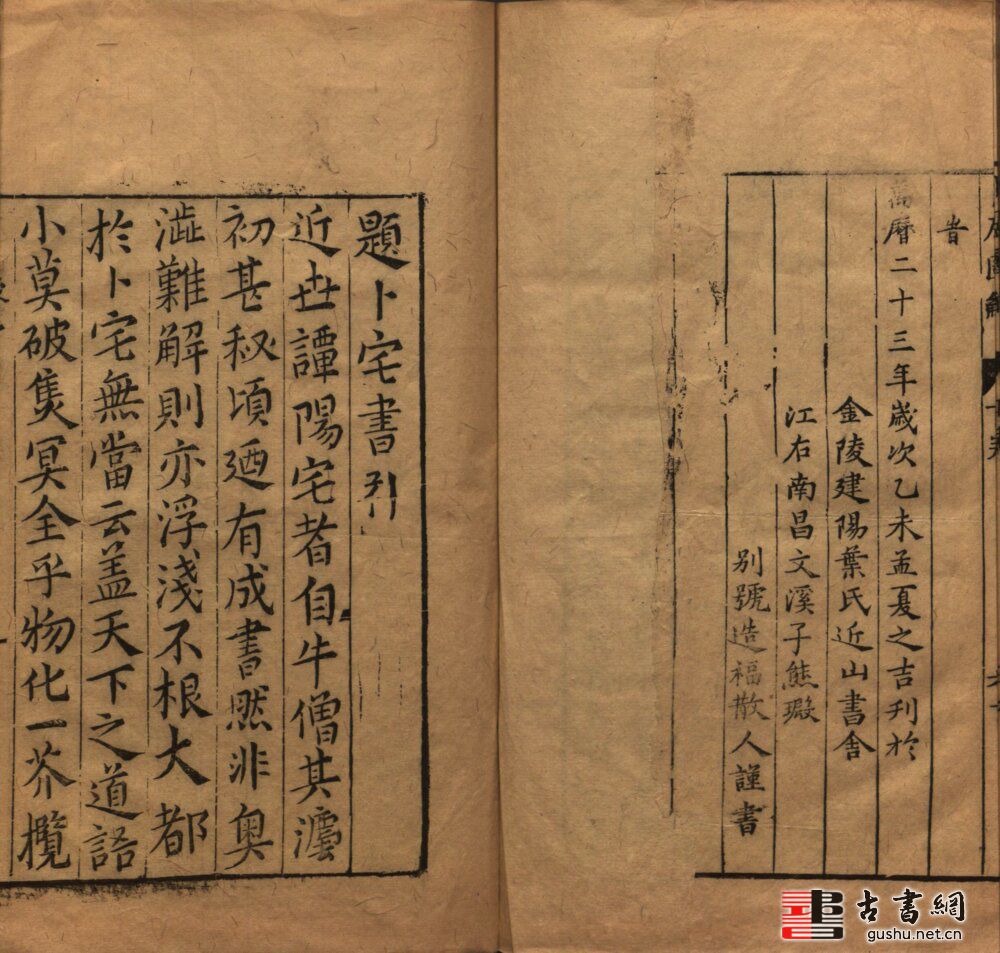 旹
萬曆二十三年歲次乙未孟夏之吉刊於
金陵建陽葉氏近山書舍
江右南昌文溪子熊瑕
别號造福散人謹書
題卜宅書引
近世譚陽宅者自牛僧其澐
初甚秘頃廼有成書然非奧
澁難解則亦浮淺不根大都
於卜宅無當云盖天下之道語
小莫破隻冥全乎物化一芥攬
古書網
gushu.net.cn